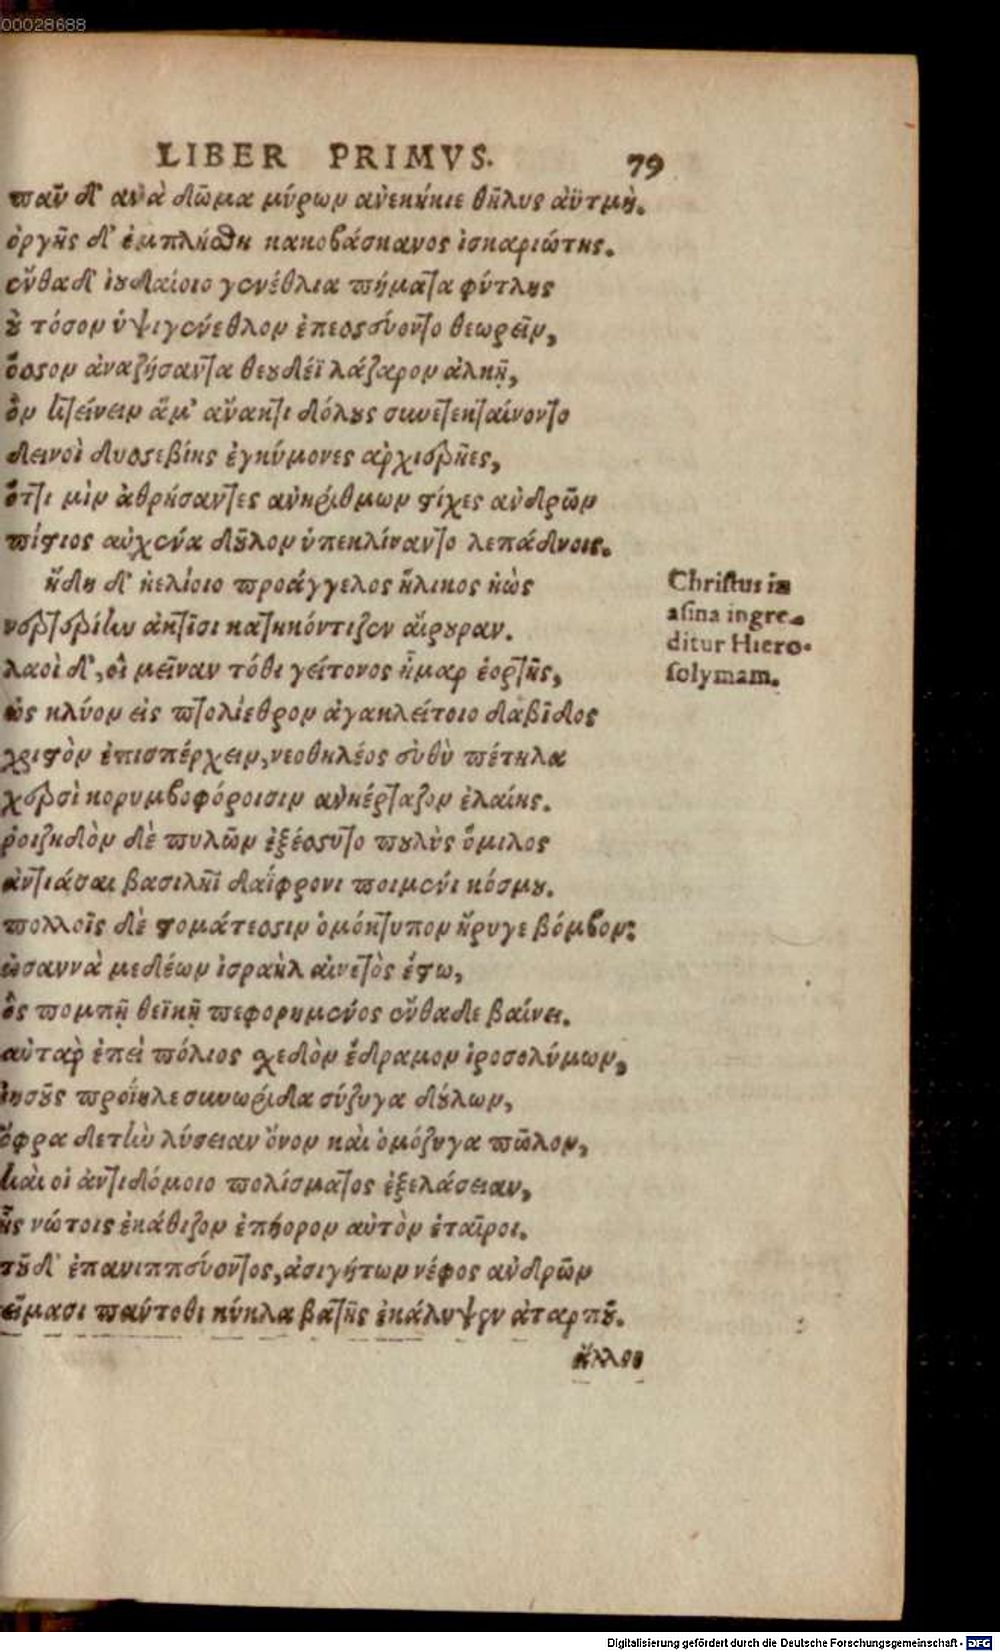 00028688
LIBER PRIMVS. 79
πᾶν δ' ἀνὰ δῶμα μύρων ἀνεκήκιε θῆλυς ἀϋτμή.
ὀργῆς δ' ἐμπλήσθη κακοβάσκανος ἰσκαριώτης.
ἔνθα δ' ἰουδαίοιο γενέθλια πήματα φύτλης
οὐ τόσον ὑψιγένεθλον ἐπεσσεύοντο θεωρεῖν,
ὅσσον ἀναζήσαντα θεουδέϊ λάζαρον ἀλκῇ,
ὃν κτείνειν ἅμ' ἄνακτι δόλους συνετεκταίνοντο
δεινοὶ δυσσεβίης ἐγκύμονες ἀρχιερῆες,
ὅττι μὶν ἀθρήσαντες ἀνηρίθμων στίχες ἀνδρῶν
πίστιος αὐχένα δοῦλον ὑπεκλίναντο λεπάδνοις.
ἤδη δ' ἠελίοιο προάγγελος ἤλικος ἠὼς
νερτερίην ἀκτῖσι κατηκόντιζεν ἄρουραν.
λαοὶ δ', οἳ μεῖναν τόθι γείτονος ἦμαρ ἑορτῆς,
ὡς κλύον εἰς πτολίεθρον ἀγακλείτοιο δαβῖδος
χριστὸν ἐπισπέρχειν, νεοθηλέος εὐθὺ πέτηλα
χερσὶ κορυμβοφόροισιν ἀνκέρταζον ἐλαίης.
ῥοιζηδὸν δὲ πυλῶν ἐξέσσυτο πουλὺς ὅμιλος
ἀντιάσαι βασιλῆϊ δαΐφρονι ποιμένι κόσμου.
πολλοῖς δὲ στομάτεσσιν ὁμόκτυπον ἤρυγε βόμβον:
ὡσαννὰ μεδέων ἰσραὴλ αἰνετὸς ἔστω,
ὃς πομπῇ θεϊκῇ πεφορημένος ἔνθαδε βαίνει.
αὐτὰρ ἐπεὶ πόλιος σχεδὸν ἔδραμον ἱροσολύμων,
ἰησοῦς προΐηλε συνωρίδα σύζυγα δούλων,
ὄφρα δετὴν λύσειαν ὄνον καὶ ὁμόζυγα πῶλον,
καὶ οἱ ἀντιδόμοιο πολίσματος ἐξελάσειαν,
ἧς νώτοις ἐκάθιζον ἐπήορον αὐτὸν ἑταῖροι.
τοῦ δ' ἐπανιππεύοντος, ἀσιγήτων νέφος ἀνδρῶν
εἵμασι πάντοθι κύκλα βατῆς ἐκάλυψεν ἀταρποῦ.
ἄλλοι
Christus in
asina ingre-
ditur Hiero-
solymam.
Digitalisierung gefördert durch die Deutsche Forschungsgemeinschaft - DFG